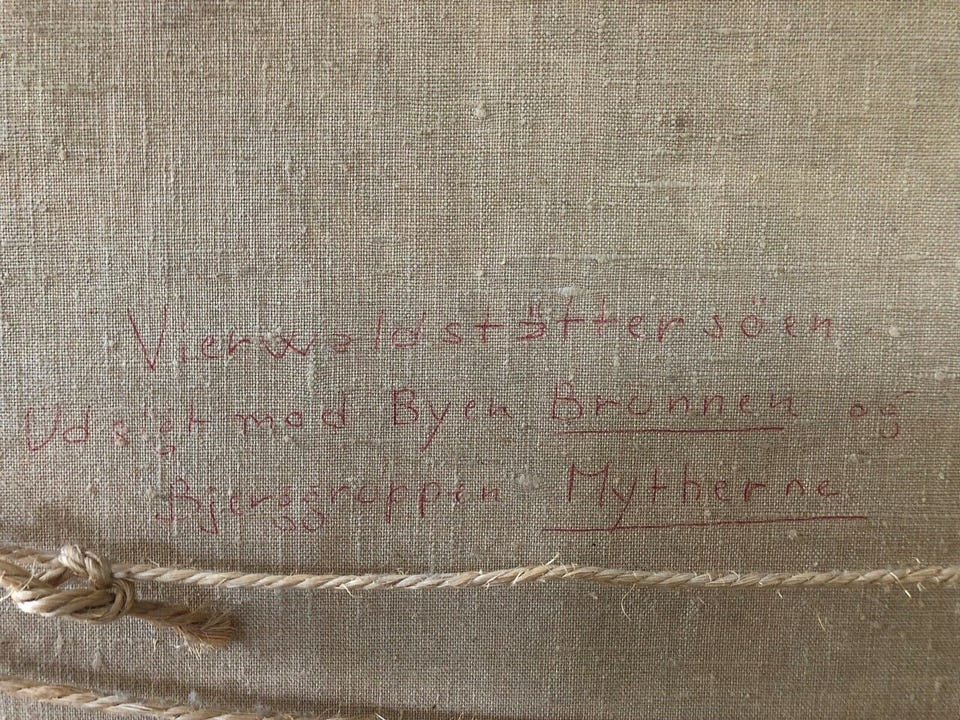 Vierwaldstättersöen
Udsigt mod Byen Brunnen og
Bjerggruppen Mytherne